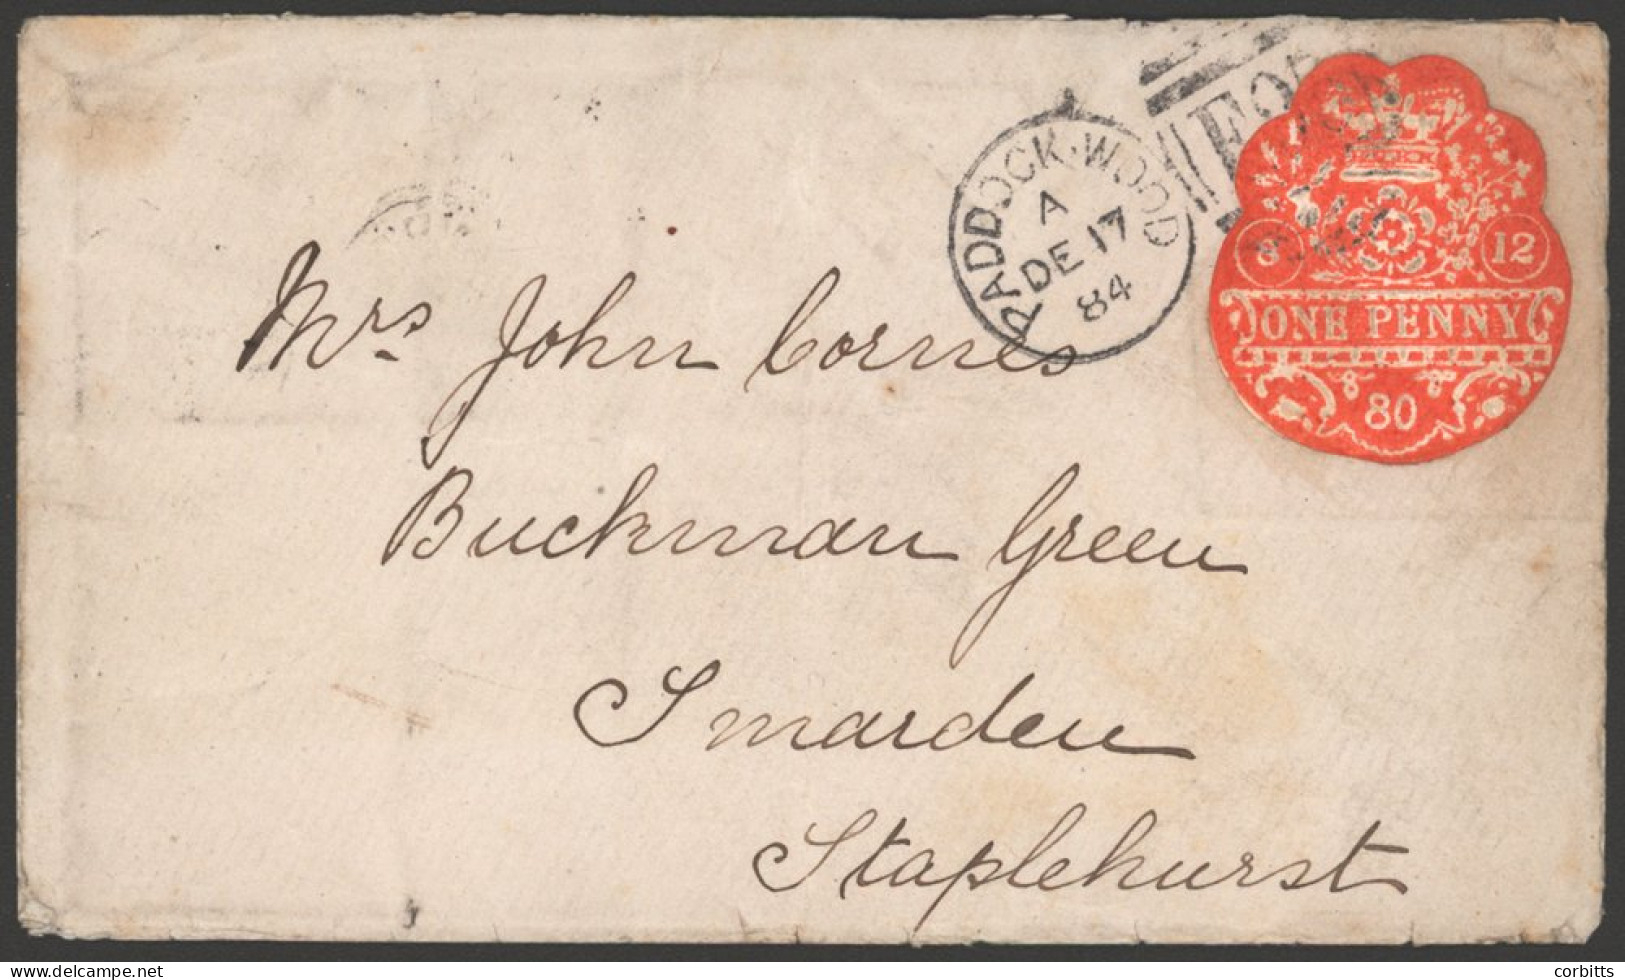 PADDOCK·WOOD
A
DE 17
84
8 12
ONE PENNY
80
Mrs John Cornes
Buckman Green
Smarden
Staplehurst
delcampe.net
corbitts